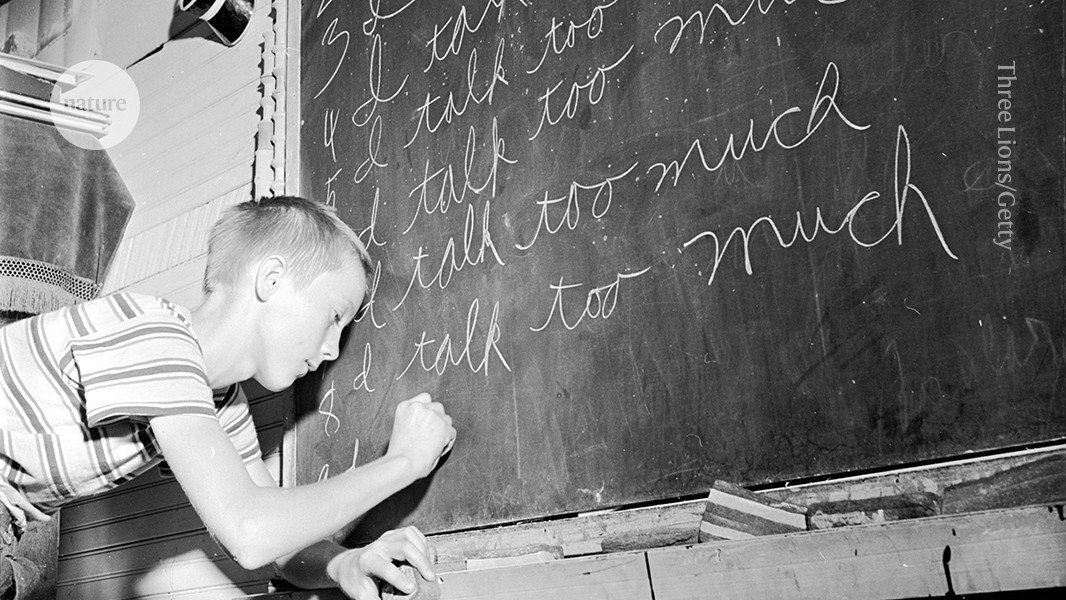 I
3 I talk
4 I talk too
5 I talk too much
I talk too much
8 I talk too much
I
nature
Three Lions/Getty